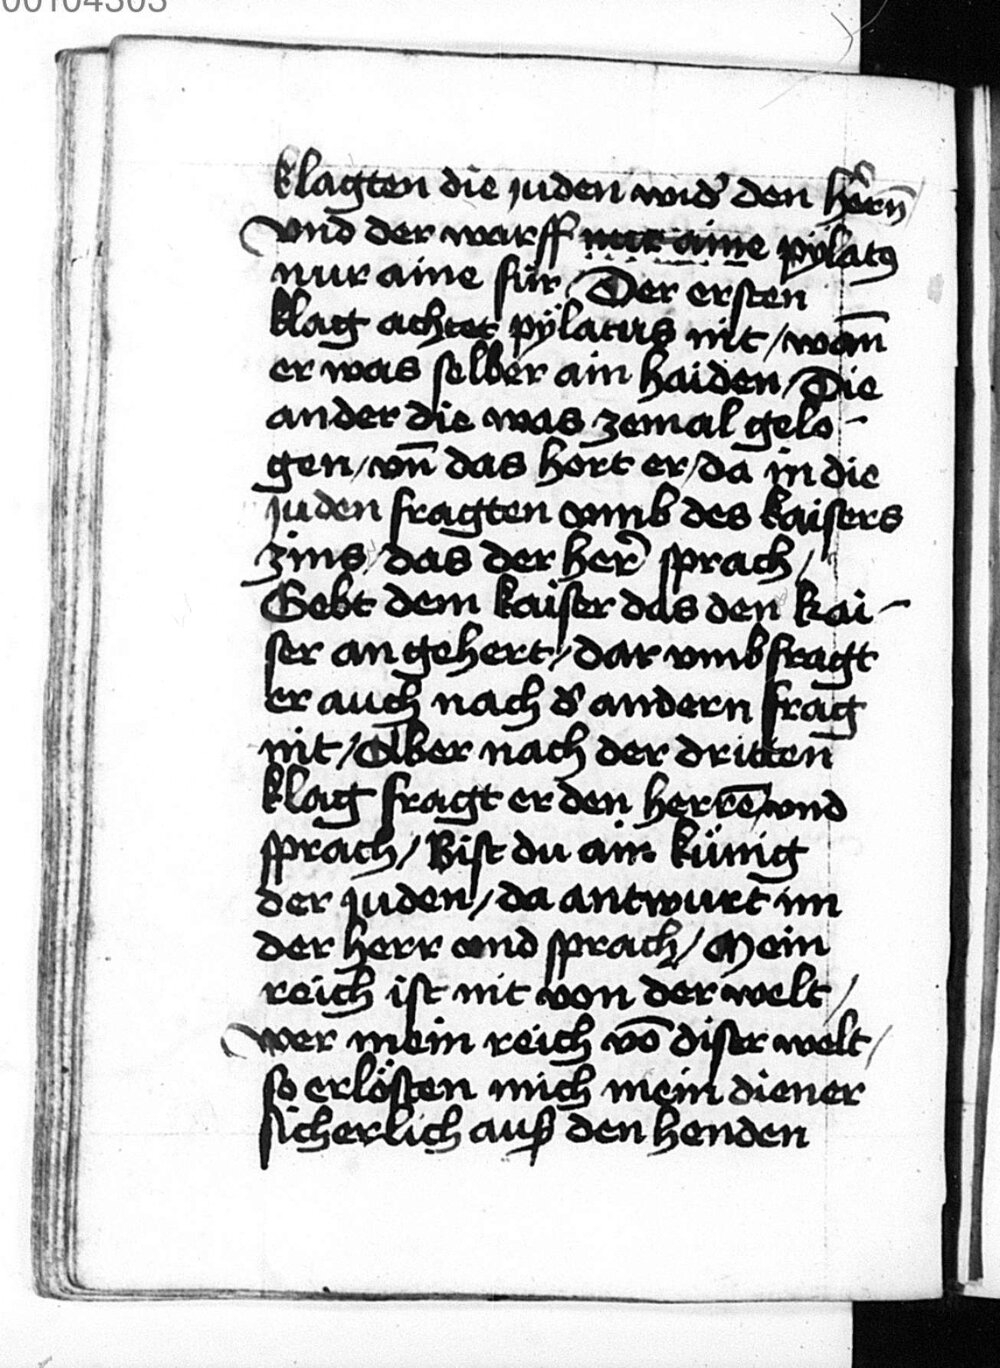 00104303
klagten die juden wid' den herrn̄
vnd der warff nur aine pÿlatꝰ
nur aine für / Der ersten
klag achtet pÿlatus nit / wan̄
er was selber ain haiden / Die
ander die was zemal gelo-
gen / vn̄ das hort er / da in die
juden fragten vmb des kaisers
zins / das der her' sprach /
Gebt dem kaiser das den kai-
ser an gehert / dar vmb fragt
er auch nach d' andern frag
nit / Aber nach der dritten
klag fragt er den herrē / vnd
sprach / Bist du ain künig
der juden / da antwurt im
der herr vnd sprach / Mein
reich ist nit von der welt /
wer mein reich vō diser welt /
so erlösten mich mein diener
sicherlich auß den henden